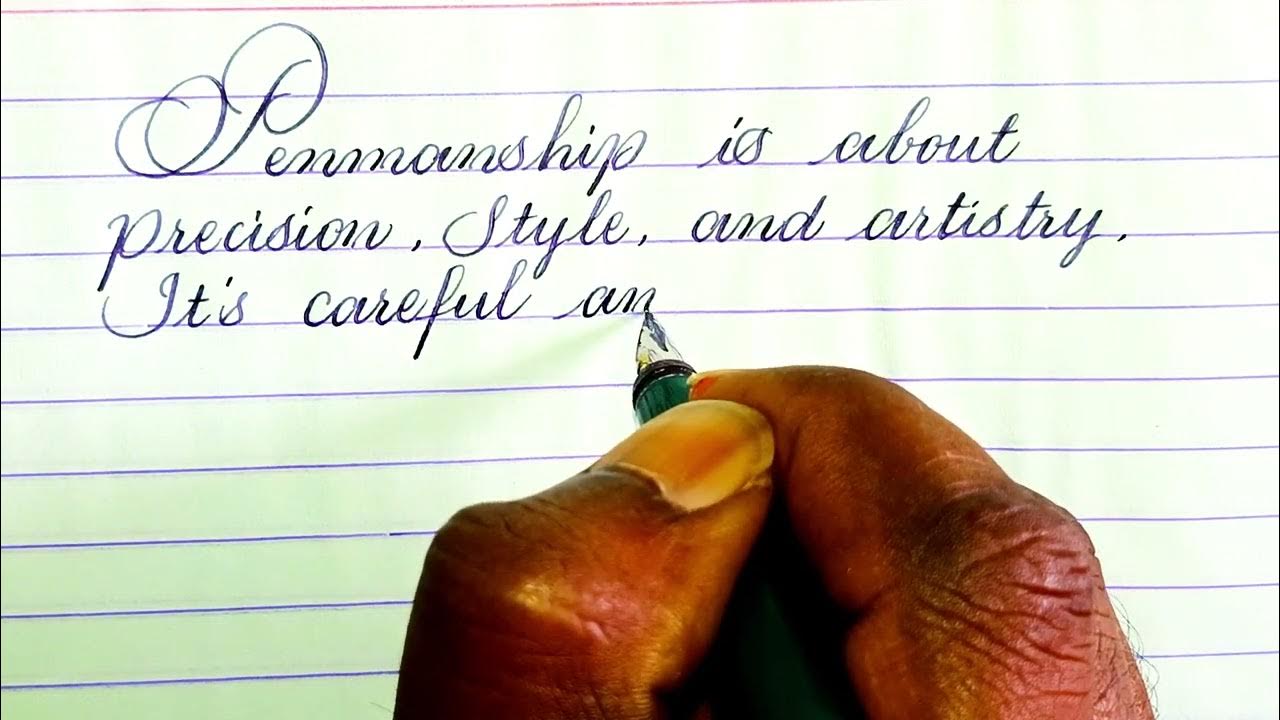 Penmanship is about
precision, Style, and artistry.
It's careful an